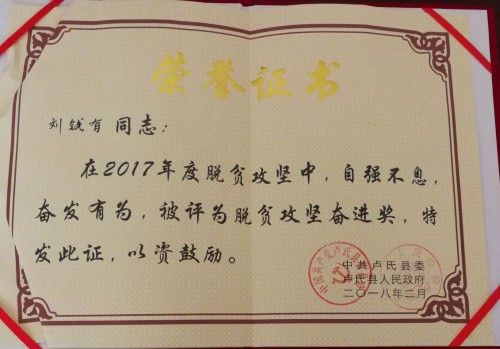 荣誉证书
刘钱有 同志：
在2017年度脱贫攻坚中，自强不息，
奋发有为，被评为脱贫攻坚奋进奖，特
发此证，以资鼓励。
中共卢氏县委
卢氏县人民政府
二〇一八年二月